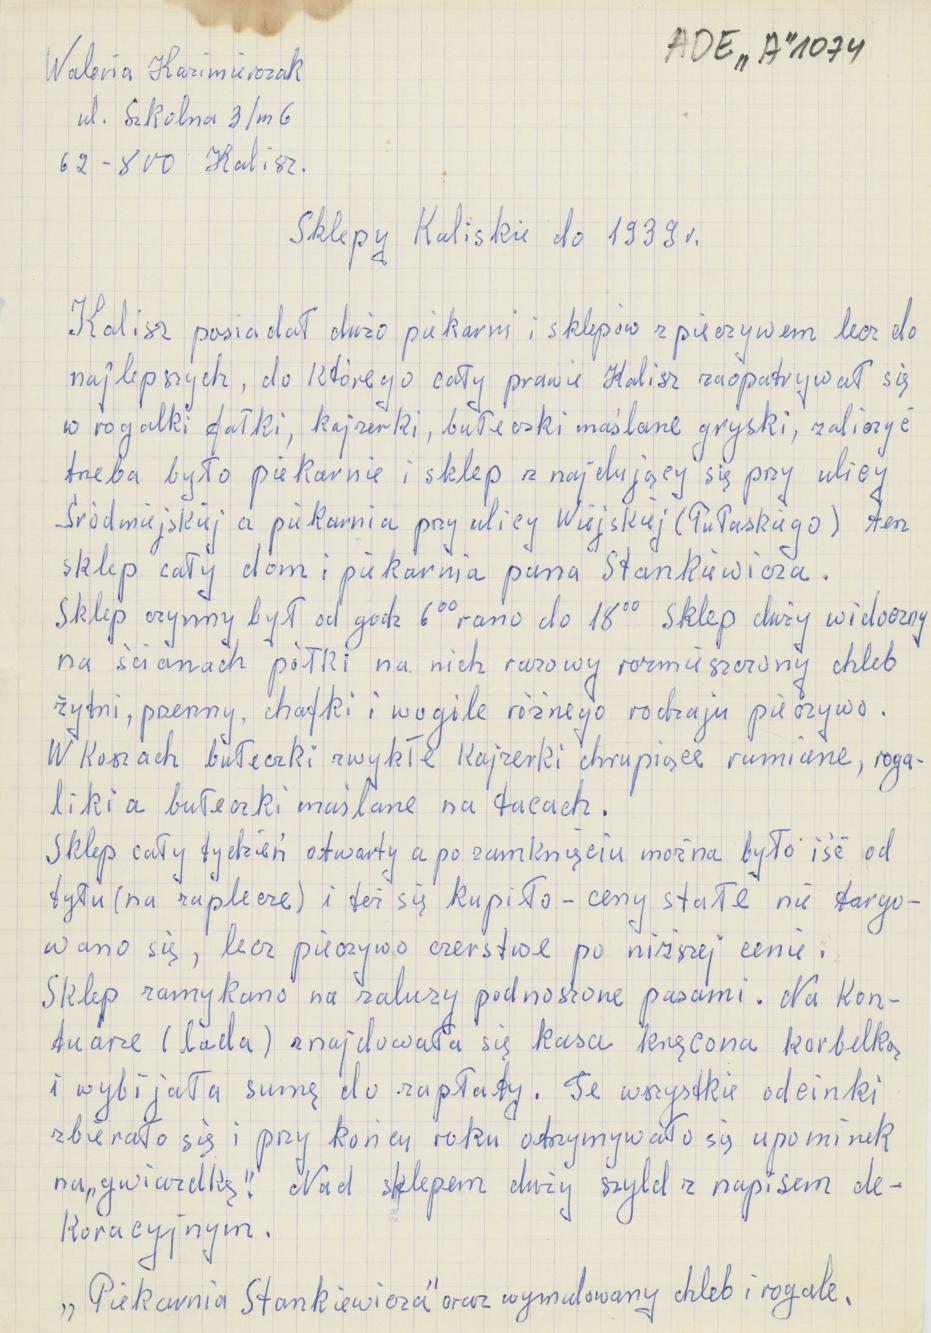 ADE „A" 1074
Waleria Kazimierczak
ul. Szkolna 3/m6
62-800 Kalisz.
Sklepy Kaliskie do 1939r.
Kalisz posiadał dużo piekarni i sklepów z pieczywem lecz do
najlepszych, do którego cały prawie Kalisz zaopatrywał się
w rogalki fałki, kajzerki, bułeczki maślane gryski, zaliczyć
trzeba było piekarnie i sklep znajdujący się przy ulicy
Śródmiejskiej a piekarnia przy ulicy Wiejskiej (Pułaskiego) ten
sklep cały dom i piekarnia pana Stankiewicza.
Sklep czynny był od godz 6⁰⁰ rano do 18⁰⁰ Sklep duży widoczny
na ścianach półki na nich razowy rozmieszczony chleb
żytni, pszenny, chałki i wogóle różnego rodzaju pieczywo.
W koszach bułeczki zwykłe kajzerki chrupiące rumiane, roga-
liki a bułeczki maślane na tacach.
Sklep cały tydzień otwarty a po zamknięciu można było iść od
tyłu (na zaplecze) i też się kupiło - ceny stałe nie targo-
wano się, lecz pieczywo czerstwe po niższej cenie.
Sklep zamykano na żaluzy podnoszone pasami. Na kon-
tuarze (lada) znajdowała się kasa kręcona korbelką
i wybijała sumę do zapłaty. Te wszystkie odcinki
zbierało się i przy końcu roku otrzymywało się upominek
na „gwiazdkę". Nad sklepem duży szyld z napisem de-
koracyjnym.
„Piekarnia Stankiewicza" oraz wymalowany chleb i rogale.